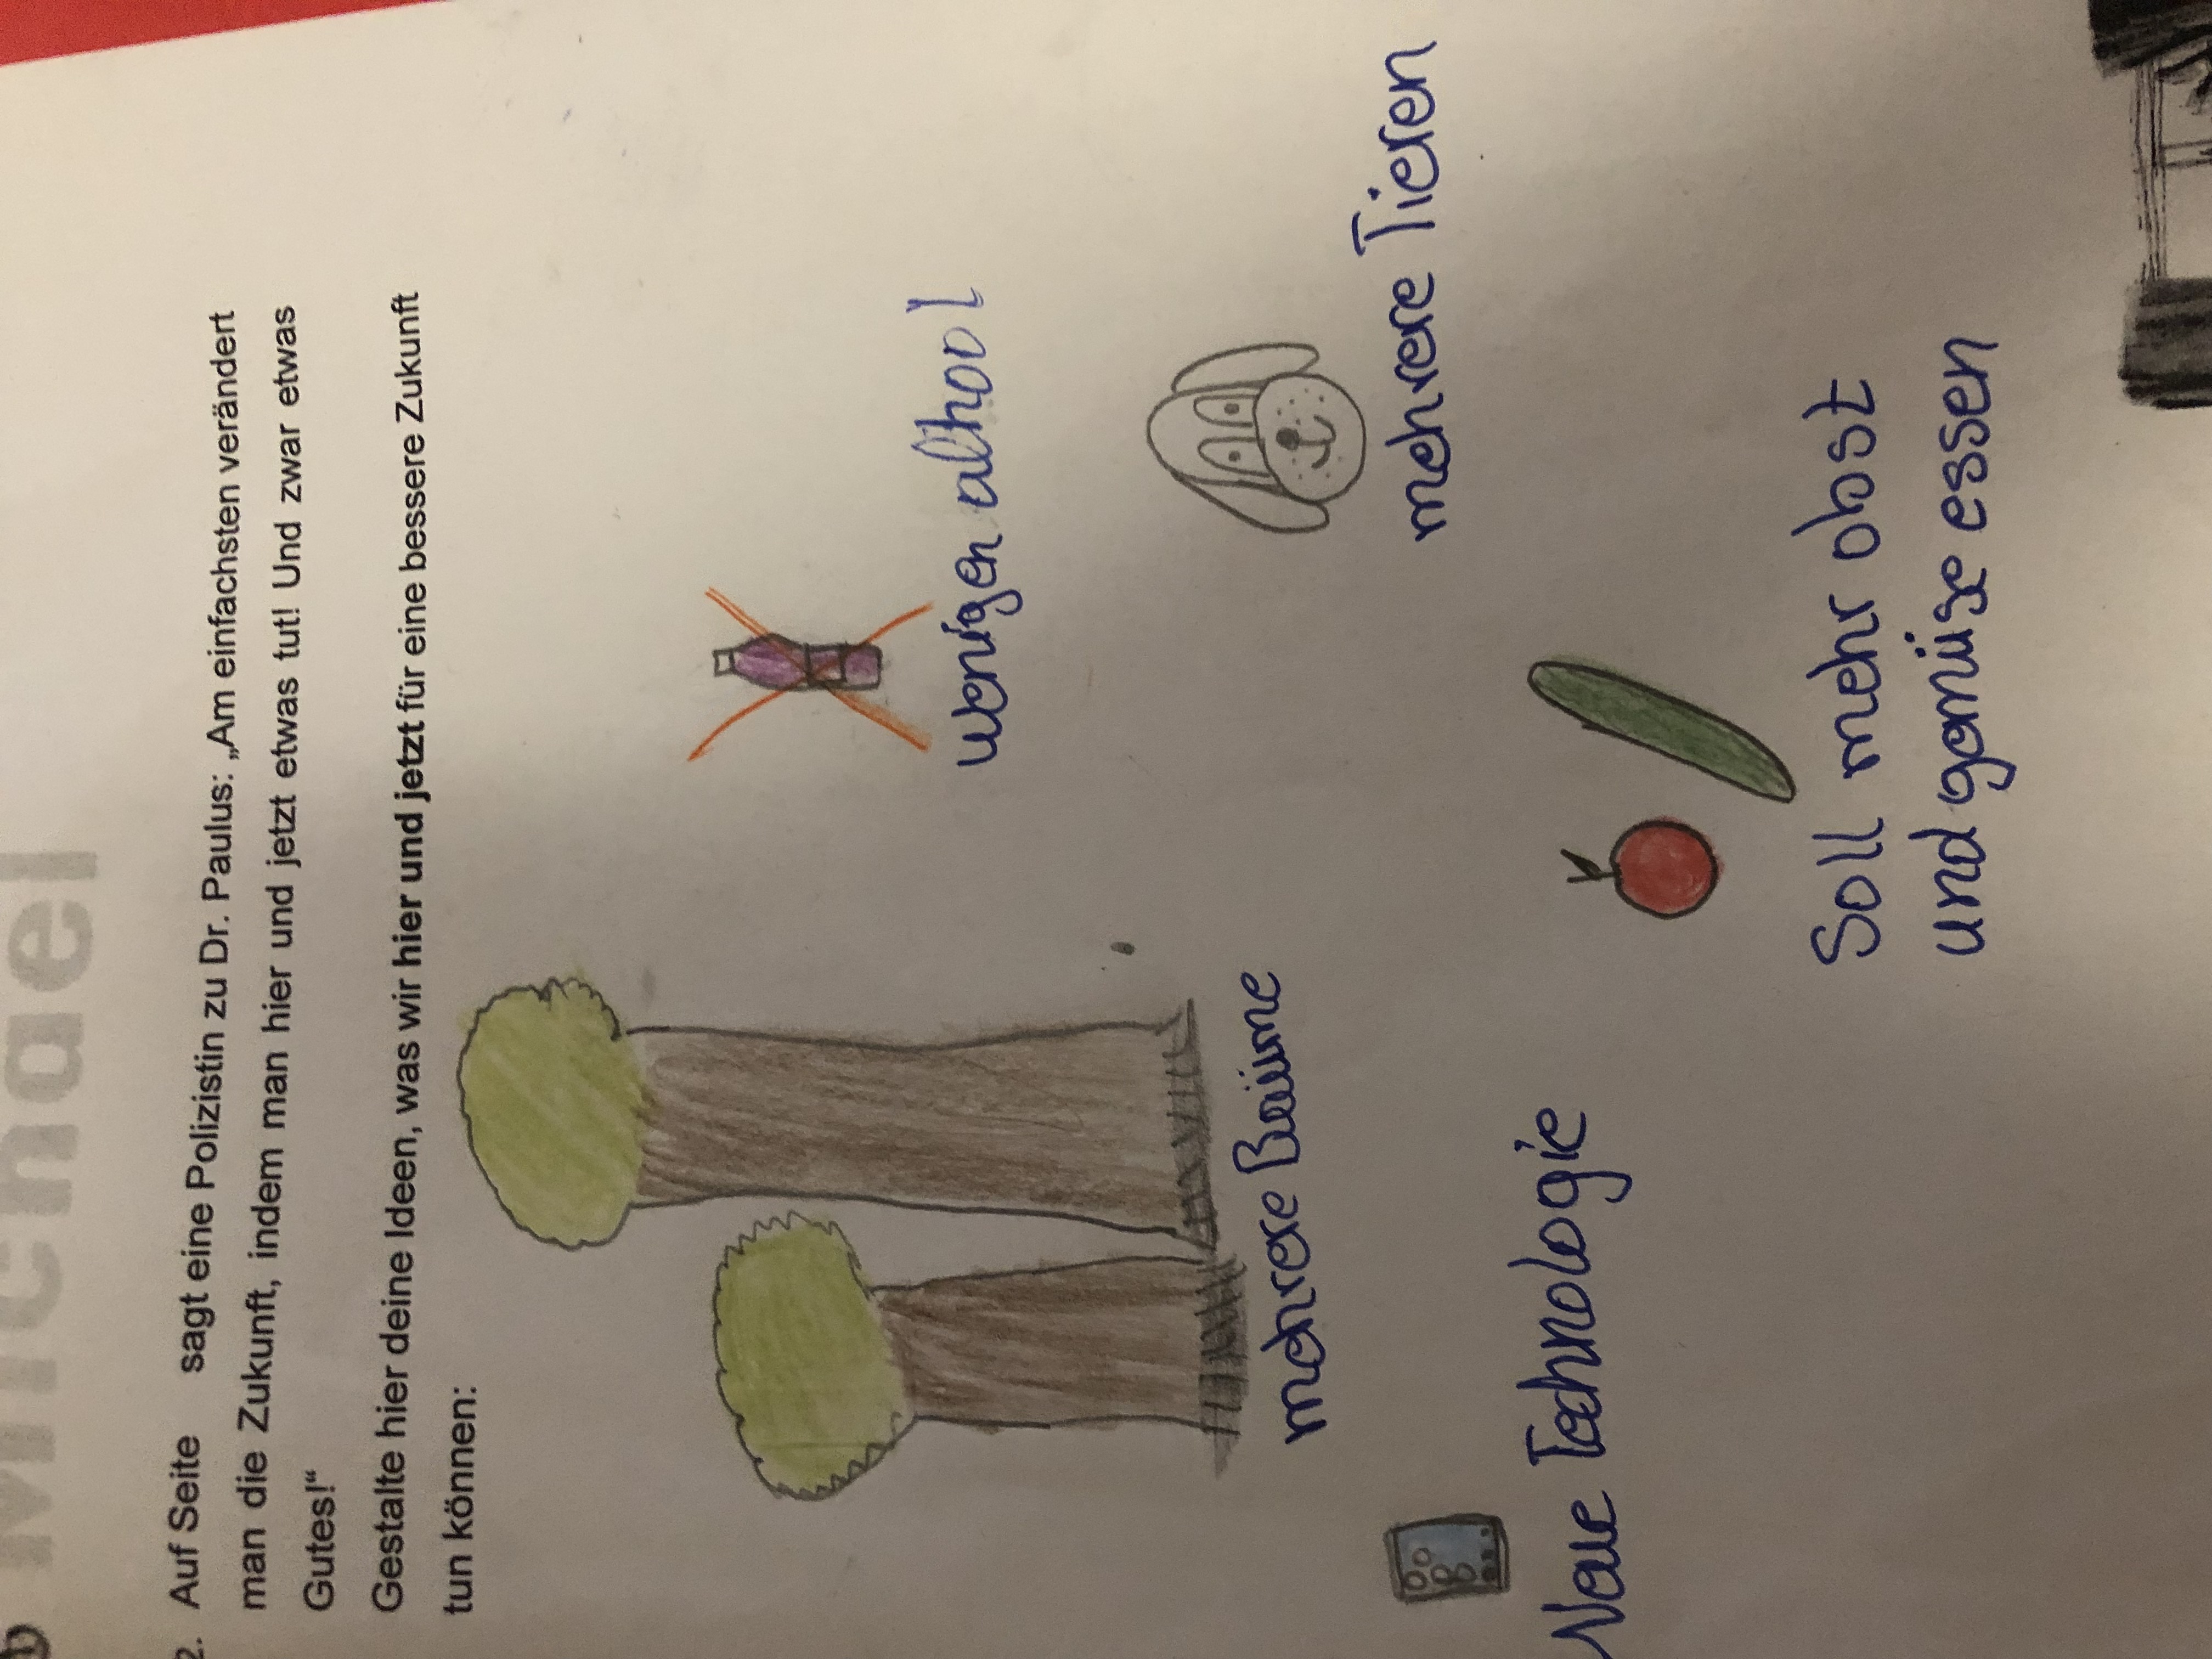 Michael
2. Auf Seite sagt eine Polizistin zu Dr. Paulus: „Am einfachsten verändert
man die Zukunft, indem man hier und jetzt etwas tut! Und zwar etwas
Gutes!“
Gestalte hier deine Ideen, was wir hier und jetzt für eine bessere Zukunft
tun können:
wenigen alhool
mehrere Baüme
mehrere Tieren
Neue Technologie
Soll mehr obst
und gemüse essen